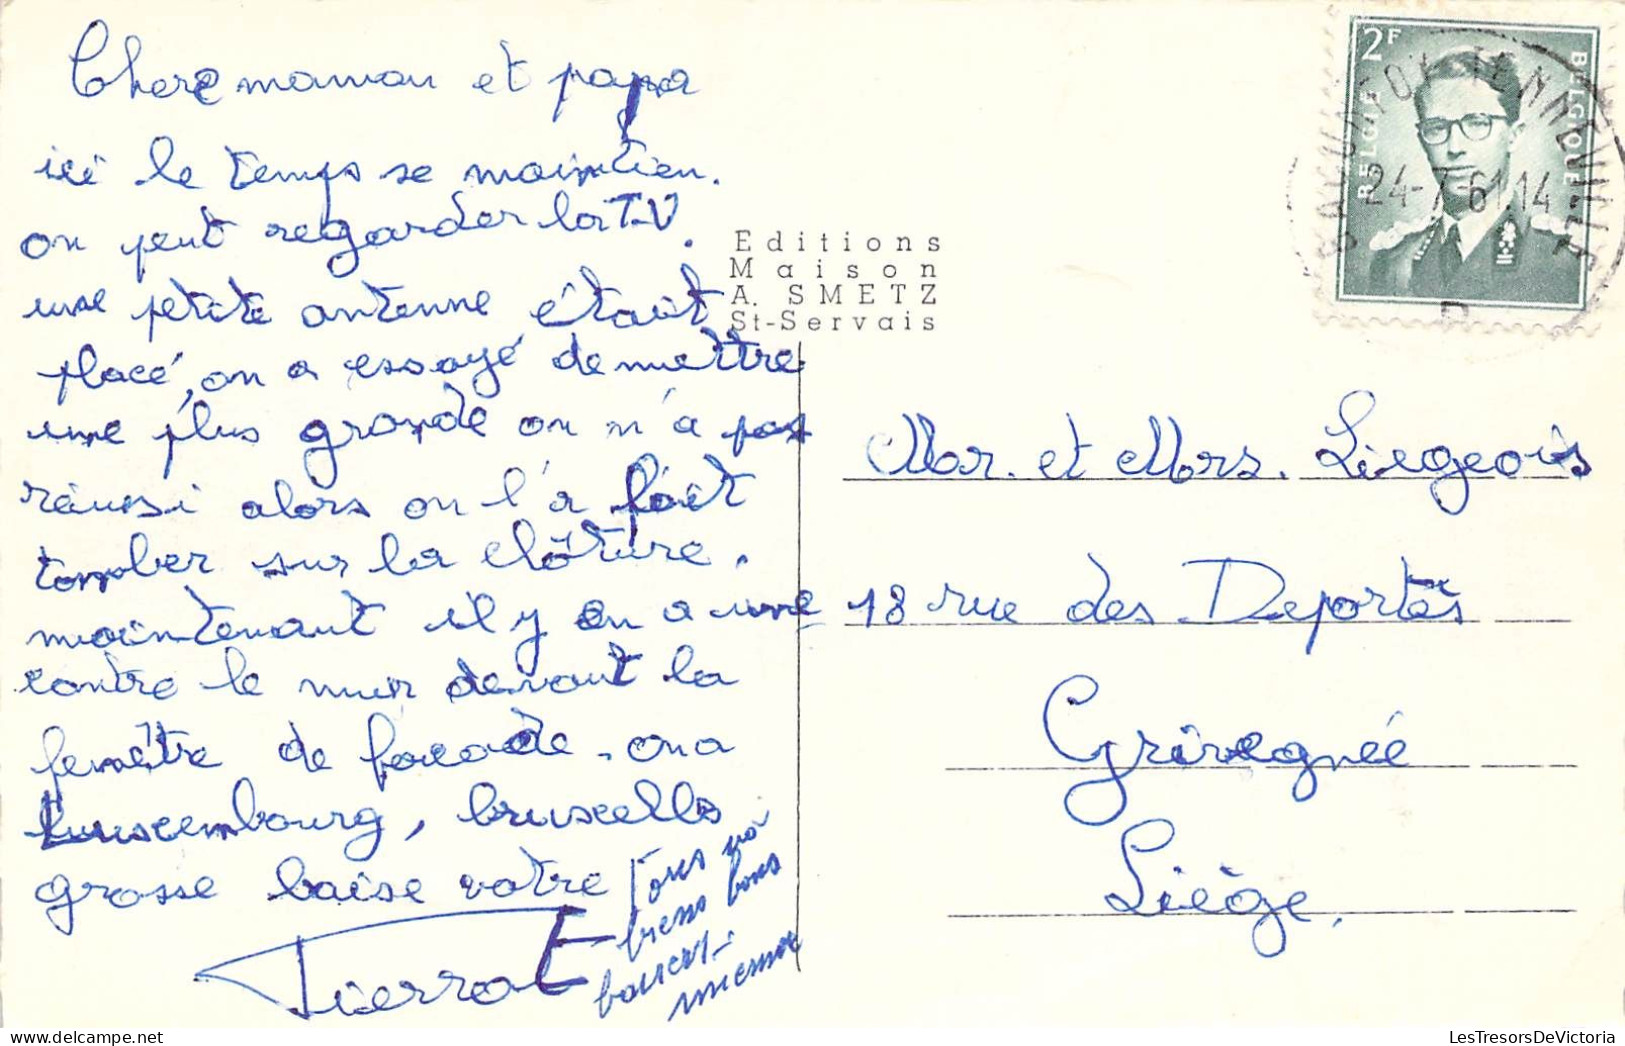 Chere maman et papa
ici le temps se maintien.
on peut regarder la T.V.
une petite antenne étaît
placé, on a essayé de mettre
une plus grande on n'a pas
réussi alors on l'a faît
tomber sur la clôture.
maintenant il y en a une
contre le mur devant la
fenêtre de facade. on a
Luxembourg, bruxelles
grosse baise votre
Pierrot
Tous va
bien bons
baisers
mémé
Editions
Maison
A. SMETZ
St-Servais
2F
BELGIE
BELGIQUE
24-7-61.14
Mr. et Mrs. Liegeois
18 rue des Deportés
Grivegnée
Liège.
LesTresorsDeVictoria